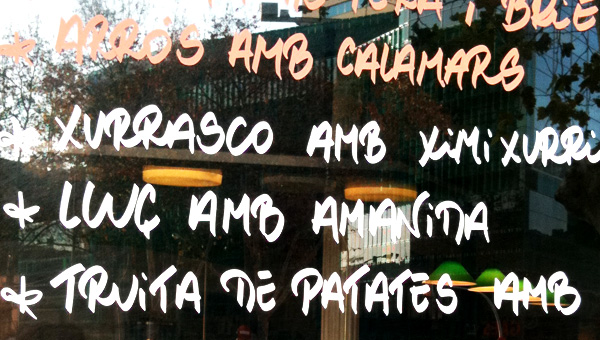 I BRIE
* ARRÒS AMB CALAMARS
* XURRASCO AMB XIMIXURRI
* LLUÇ AMB AMANIDA
* TRUITA DE PATATES AMB